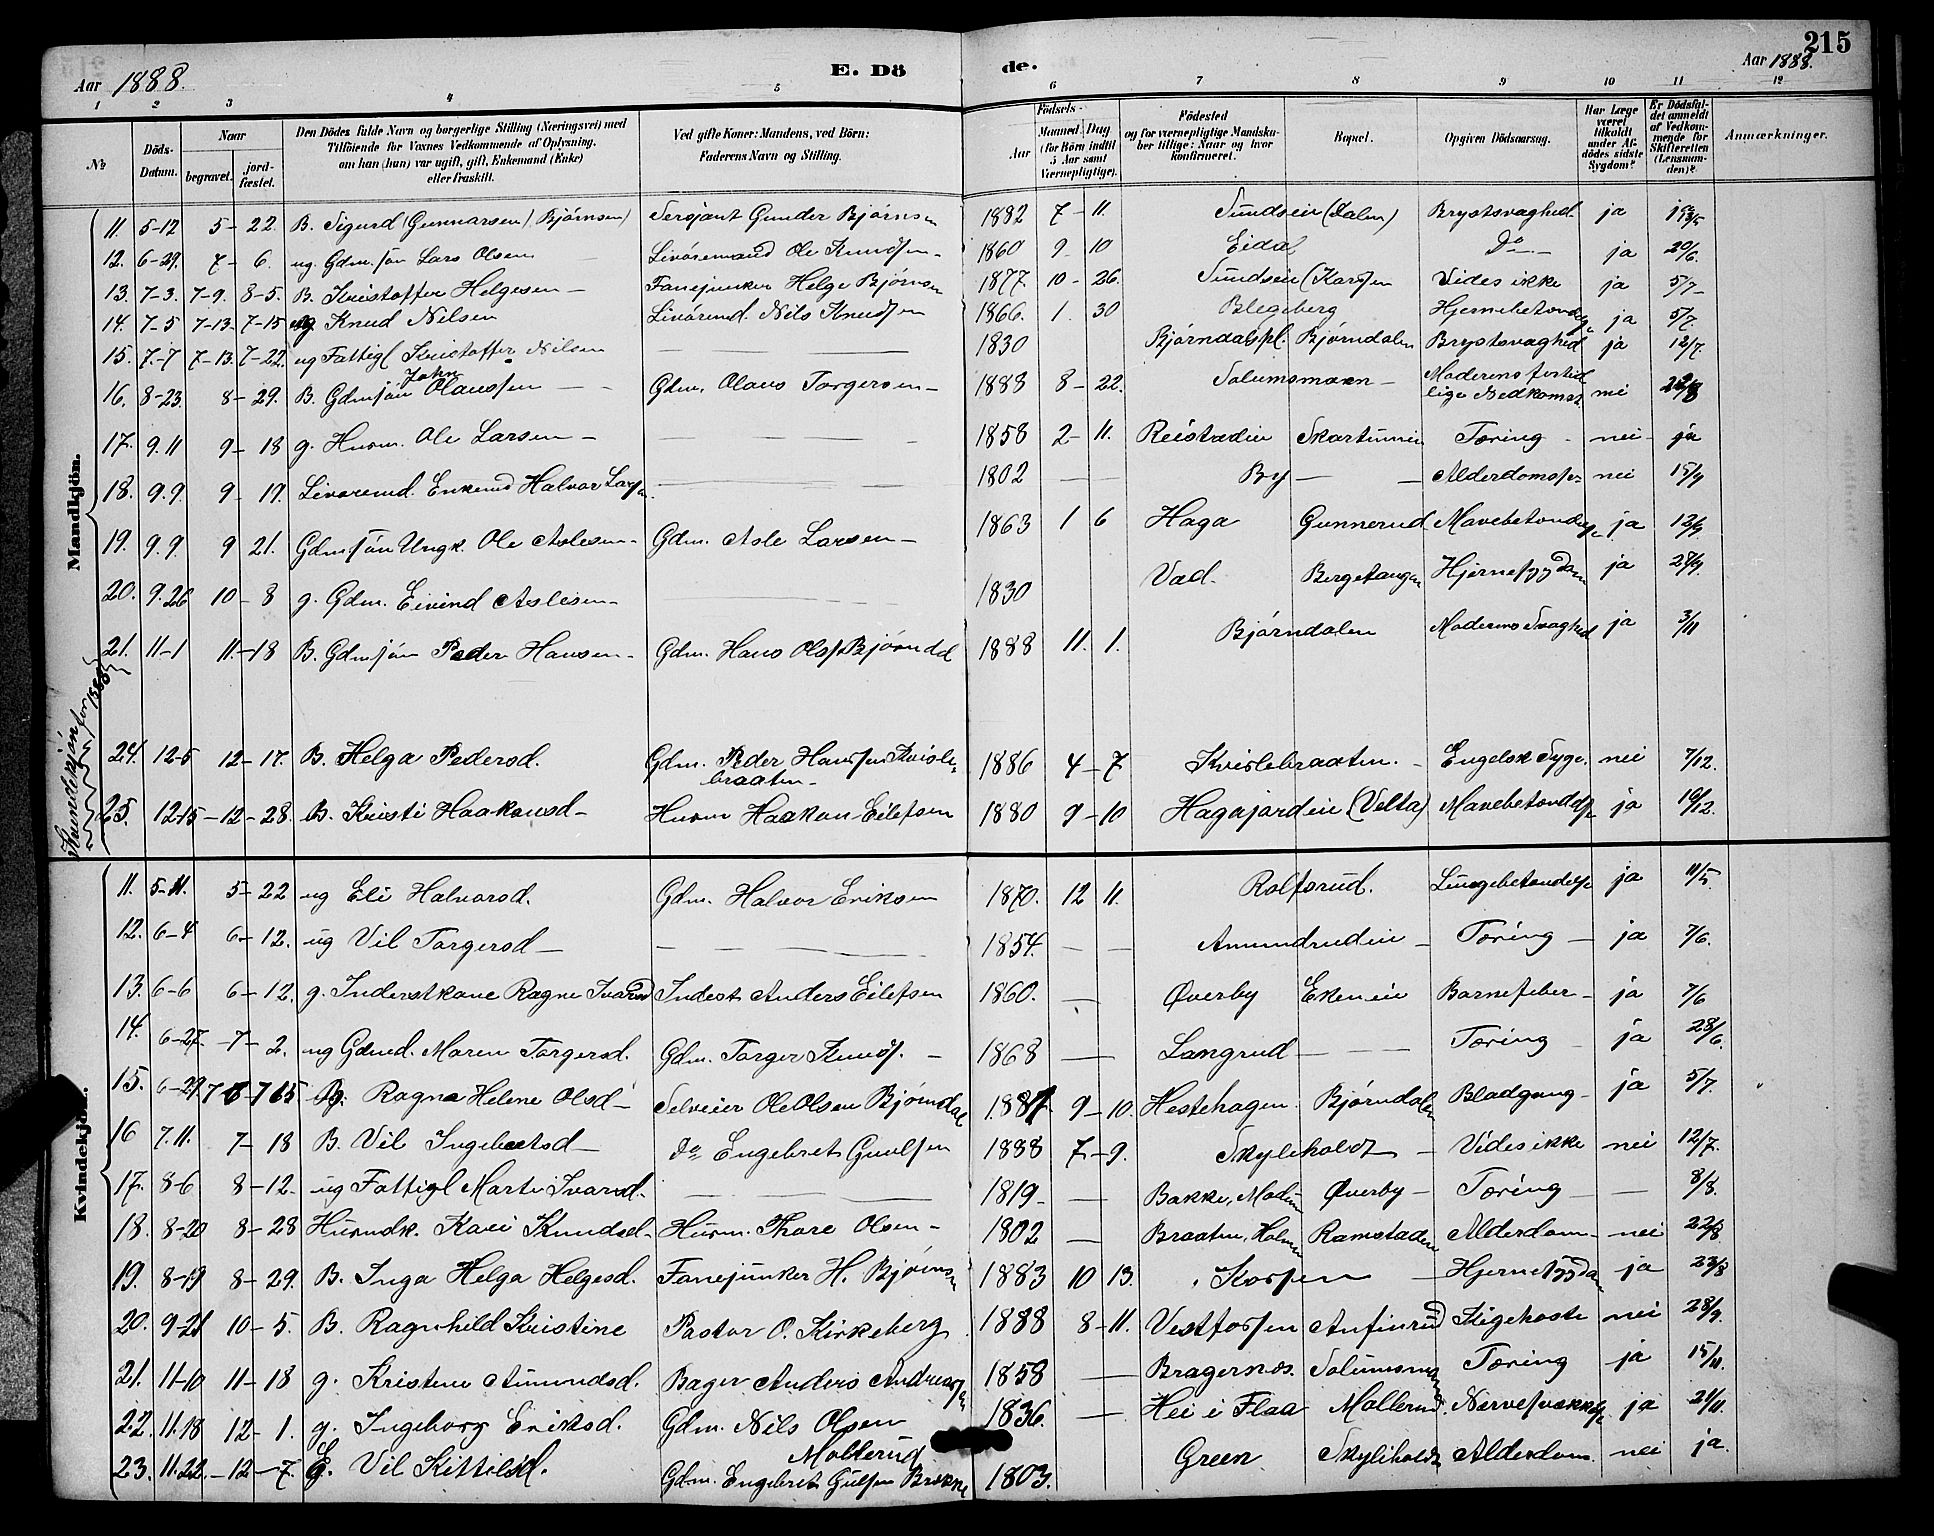 215
Aar 1888.
E. Dö
de.
Aar 1888.
1 2 3 4 5 6 7 8 9 10 11 12
№
Döds-Datum.
Naar
begravet.
jord-fæstet.
Den Dödes fulde Navn og borgerlige Stilling (Næringsvei) med
Tilföiende for Voxnes Vedkommende af Oplysning,
om han (hun) var ugift, gift, Enkemand (Enke)
eller fraskilt.
Ved gifte Koner: Mandens, ved Börn:
Faderens Navn og Stilling.
Födsels-
Aar
Maaned Dag
(for Börn indtil
5 Aar samt
Værnepligtige).
Födested
og for værnepligtige Mandskaber tillige: Naar og hvor
konfirmeret.
Bopæl.
Opgiven Dödsaarsag.
Har Læge været tilkaldt under Afdödes sidste Sygdom?
Er Dödsfaldet anmeldt af Vedkommende for Skifteretten (Lensmanden)?
Anmærkninger.
Mandkjön.
11. 5-12 5-22. B. Sigurd (Gunnarsen) Bjørnsen) Sersjant Gunder Bjørnsen 1882 7-11. Sundseie (Dalen) Brystsvaghed ja
12. 6-29. 7-6. ug. Gdm.søn Lars Olsen Livøremand Ole Knudsen 1860 9-10 Eidal Do ja 20/6.
13. 7-3. 7-9. 8-5. B. Kristoffer Helgesen - Fanejunker Helge Bjørnsen 1877. 10-26. Sundseie (Korsen Vides ikke ja 5/7-
14. 7-5 7-13-7-15 ug Knud Nilsen Livøremd. Nils Knudsen 1866. 1. 30 Blegeberg Hjernebetændelse ja 5/7.
15. 7-7 7-13. 7-22. ug Fattigl Kristoffer Nilsen — — 1830 Bjørndalspl. Bjørndalen Brystsvaghed ja 12/7.
16. 8-23. 8-29. B. Gdmsøn John Olaussen - Gdm. Olaus Torgersen - 1888 8-22. Solumsmoen - Moderens fortidlige Nedkomst. nei
17. 9.11 9-18 g. Husm. Ole Larsen - — 1858 2-11. Reistadeie Skartumeie Tæring - nei - ja
18. 9.9. 9-19. Livøremd. Enkemd Halvor Larsen. — 1802 — — By — Alderdomssv nei 15/9
19. 9.9. 9 21. Gdmsøn Ungk. Ole Aslesen - Gdm. Asle Larsen - 1863 1 6 Haga Gunnerud Mavebetændelse ja 12/9.
20. 9.26 10-8 g. Gdm. Eivind Aslesen - 1830 Vad. Bergetangen Hjernesygdom ja 28/9.
21. 11-1 11.-18 B. Gdmsøn Peder Hansen - Gdm. Hans Ols. Bjørndal 1888 11. 1. Bjørndalen Moderens Svaghed ja 3/11
Kvindekjön for 1888
24. 12-5 12-17. B. Helga Pedersd. Gdm. Peder Hansen Kvisle-
braaten - 1886 4-7 Kvislebraaten. - Engelsk Syge. nei 7/12.
25. 12-15-12-28. B. Kristi Haakonsd - Husm Haakon Eilefsen 1880 9-10 Hagajordeie (Velta) Mavebetændelse ja 19/12.
Kvindekjön.
11. 5-11. 5-22 ug Eli Halvorsd. Gdm. Halvor Eriksen 1870. 12 11. Rolfsrud. Lungebetændelse ja 11/5.
12. 6-4 6-12. ug Vil Torgersd - — 1854. — — Amundrudeie - Tæring - ja 7/6.
13. 6-6 6-12. g. Inderstkone Ragne Ivarsd Inderst Anders Eilefsen 1860. — Øverby Ekeneie Barnefeber - ja 7/6
14. 6-27. -7-2. ug Gdmd. Maren Torgersd. Gdm. Torger Knuds. - 1868 — Langrud — — Tæring ja 28/6.
15. 6-29. B. Ragna Helene Olsd - Selveier Ole Olsen Bjørndal 1887 9-10. Hestehagen Bjørndalen Blodgang - ja 5/7.
16 7.11. 7-18 B. Vil Ingebretsd - do Engebret Gulsen 1888 7-9. Skyliholdt - Vides ikke nei 12/7.
17. 8-6 8-12. ug Fattigl Marte Ivarsd. — 1819- — Bakke, Modum Øverby - Tæring - — 8/8.
18. 8-20 8-28 Husmdk. Kari Knudsd. Husm. Thore Olsen - 1802 — Braaten, Holmen Ramstaden Alderdom - nei 22/8
19. 8-19 8-29. B. Inga Helga Helgesd. Fanejunker H. Bjørnsen 1883 10 13. Korsen - Hjernesygdom ja 23/8
20. 9-21 10-5. B. Ragnhild Kristine Pastor O. Kirkeberg 1888 8-11. Vestfossen Anfinrud Kighoste nei 28/9.
21. 11-10 11-18 g. Kristine Amundsd. Bager Anders Andreassen 1858 — Bragernæs. Solumsmoen Tæring ja 15/11.
22. 11.18 12-1. g. Ingeborg Eriksd. Gdm. Nils Olsen
Mollerud 1836. — Hei i Flaa Mollerud. Nervesvækkelse ja 21/11.
23. 11.22.-12-7. G. Vil Kittilsd. Gdm. Engebret Gulsen Brekke 1803. Green Skyliholdt Alderdom. nei ja.